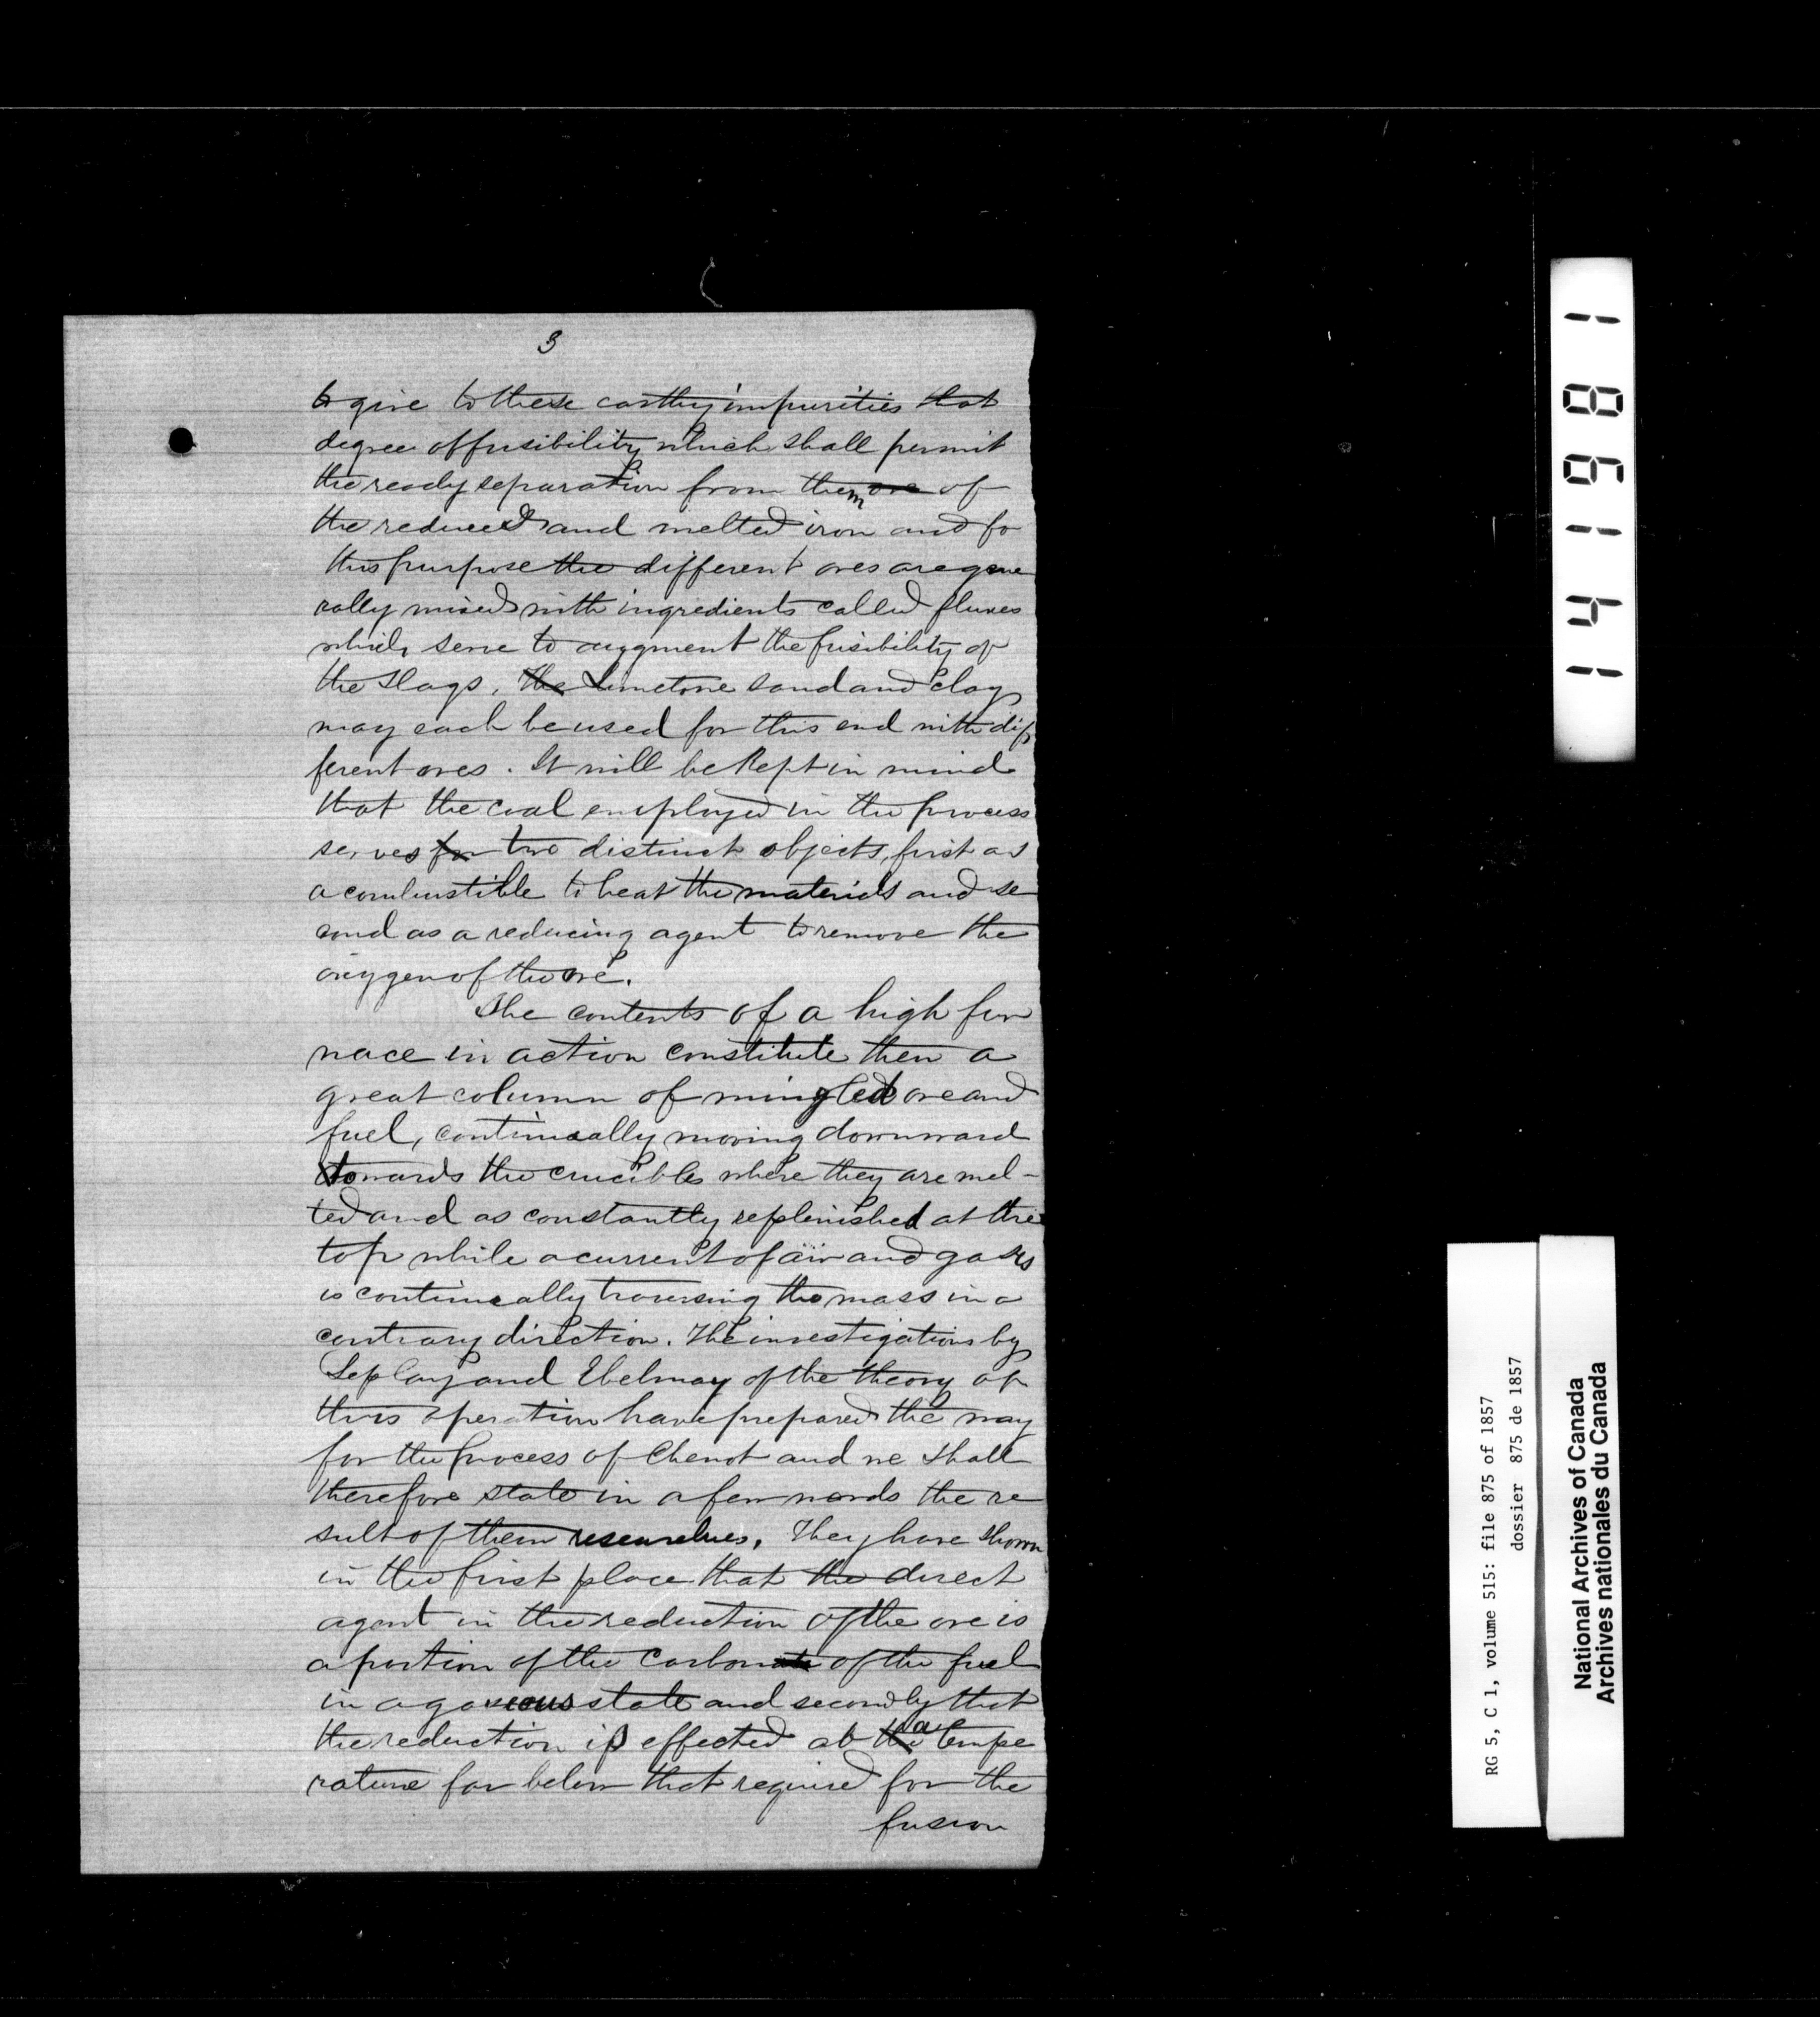 3
to give to these earthy impurities that
degree of fusibility which shall permit
the ready separation from them ore of
the reduced and melted iron and fo
this purpose the different ores are gene
rally mixed with ingredients called fluxes
which serve to augment the fusibility of
the slags. The Limetone sand and clay
may each be used for this end with dif
ferent ores. It will be kept in mind
that the coal employed in the process
serves for two distinct objects, first as
a combustible to heat the materials and se
cond as a reducing agent to remove the
oxygen of the ore.
The contents of a high fur
nace in action constitute then a
great column of mingled ore and
fuel, continually moving downward
towards the crucibles where they are mel-
ted and as constantly replenished at the
top while a current of air and gases
is continually traversing the mass in a
contrary direction. The investigations by
Leplay and Ebelmay of the theory of
this operation have prepared the way
for the process of Chenot and we shall
therefore state in a few words the re
sult of them researches. They have shown
in the first place that the direct
agent in the reduction of the ore is
a portion of the Carbonate of the fuel
in a gaseous state and secondly that
the reduction is effected at the a tempe
rature far below that required for the
fusion
141981
RG 5, C 1, volume 515: file 875 of 1857
dossier 875 de 1857
National Archives of Canada
Archives nationales du Canada